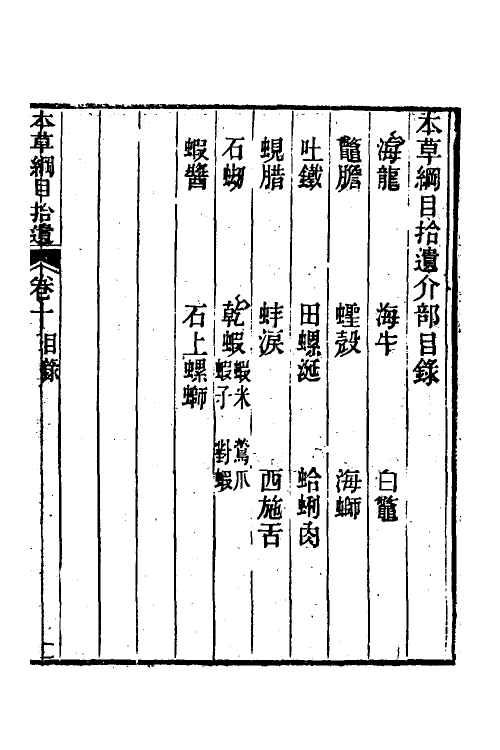 本草綱目拾遺介部目錄
海龍　海牛　白鼈
鼈膽　蟶殼　海螄
吐鐵　田螺涎　蛤蜊肉
蜆腊　蚌淚　西施舌
石蜐　乾蝦　蝦米　蝦子　鶯爪　對蝦
蝦醬　石上螺螄
本草綱目拾遺　卷十　目錄　一